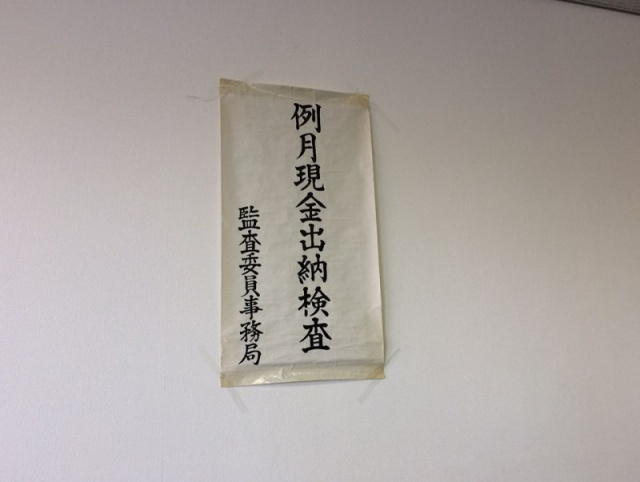 例月現金出納検査
監査委員事務局